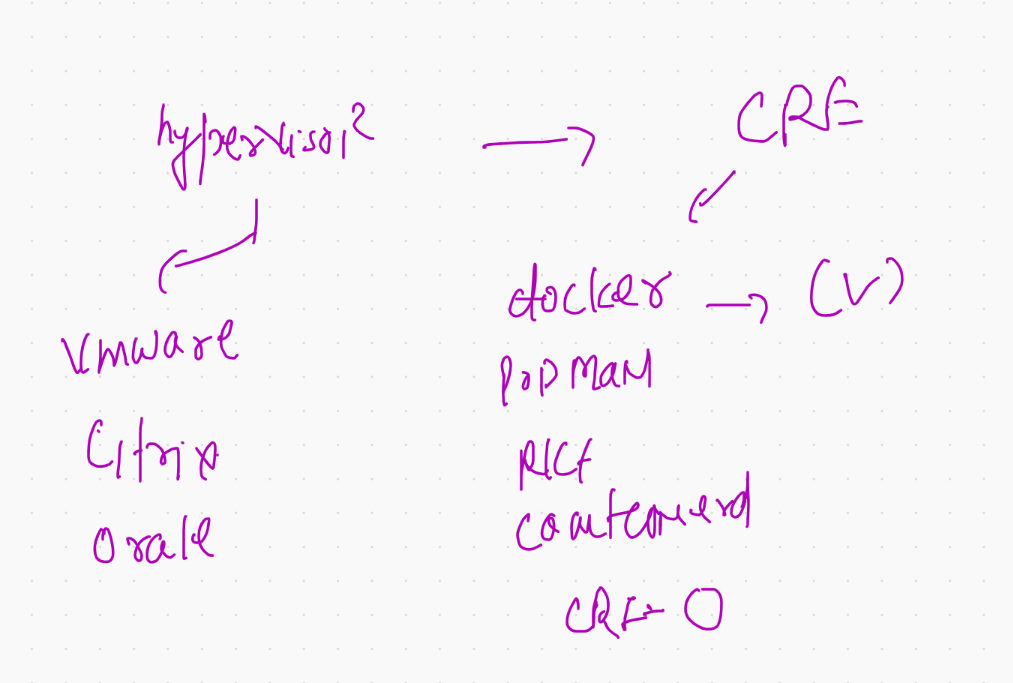 hypervisor → CRE
vmware
Citrix
Orale
docker → (V)
PODMAN
RKt
containerd
CRI-O